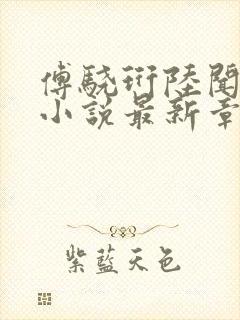 傅驍珩陸聞
小說最新章
紫藍天色